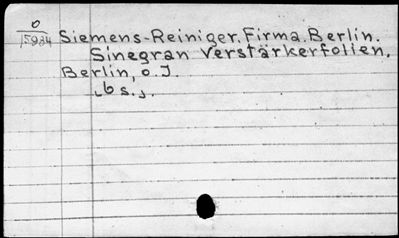 O
15934 Siemens-Reiniger. Firma. Berlin.
Sinegran Verstärkerfolien.
Berlin, o. J.
6 s.